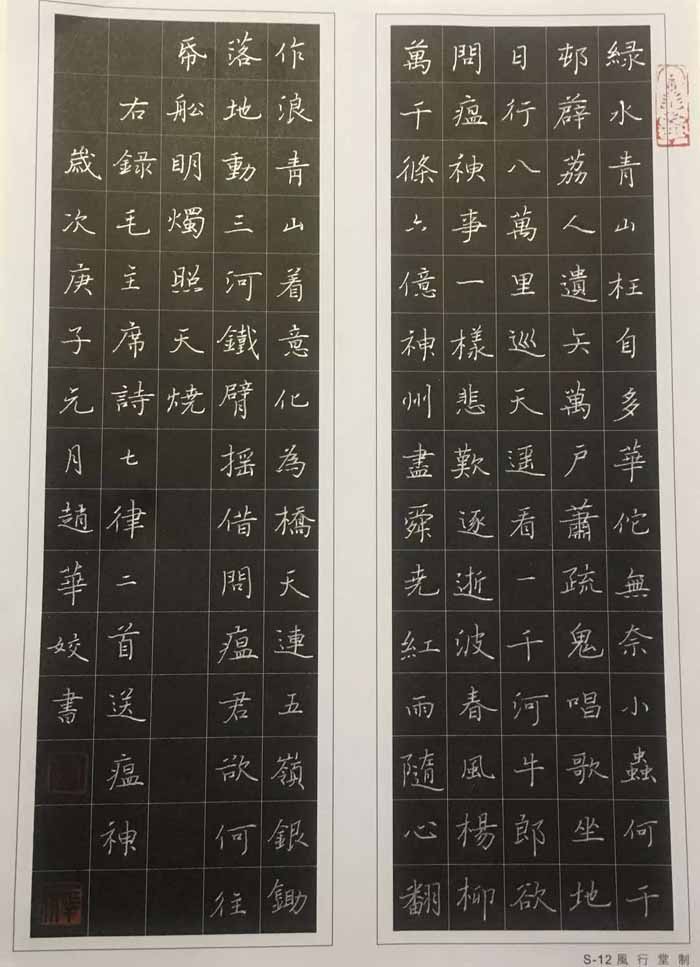 緑水青山枉自多華佗無奈小蟲何千
邨薜荔人遺矢萬戶蕭疏鬼唱歌坐地
日行八萬里巡天遥看一千河牛郎欲
問瘟神事一樣悲歎逐逝波春風楊柳
萬千條六億神州盡舜尭紅雨隨心翻
作浪青山着意化為橋天連五嶺銀鋤
落地動三河鐵臂摇借問瘟君欲何往
帋舩明燭照天焼
右録毛主席詩七律二首送瘟神
歲次庚子元月趙華姣書
S-12 風行堂制